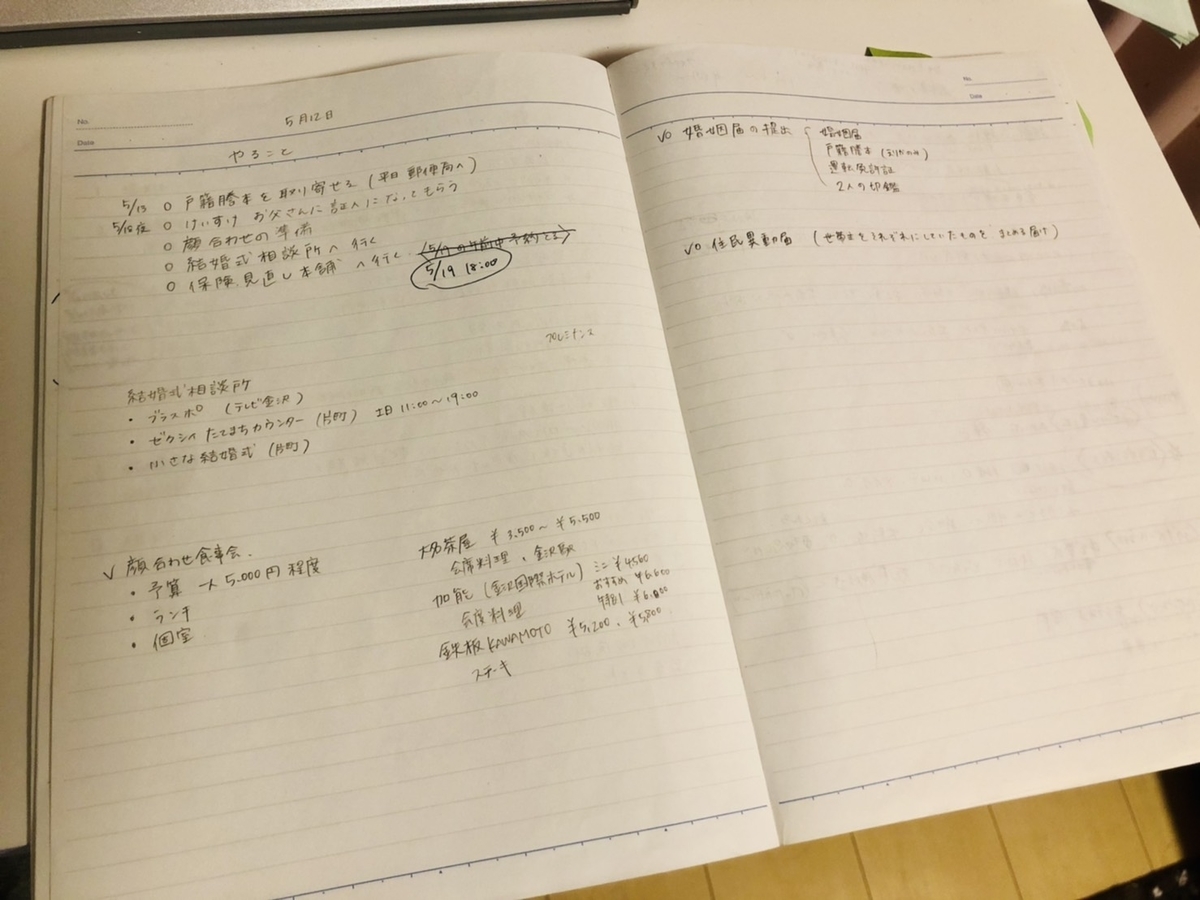 No.
Date
5月12日
やること
5/13 ○ 戸籍謄本を取り寄せる (平日 郵便局へ)
5/12夜 ○ けいすけ お父さんに証人になってもらう
○ 顔合わせの準備
○ 結婚式相談所へ行く
○ 保険見直し本舗へ行く
5/19 18:00
プレミナンス
結婚式相談所
・ プラスポ (テレビ金沢)
・ ゼクシィ たてまちカウンター (片町) 土日 11:00〜19:00
・ 小さな結婚式 (片町)
✓ 顔合わせ食事会.
・ 予算 一人 5,000円程度
・ ランチ
・ 個室
大名茶屋 ¥3,500〜¥5,500
会席料理、金沢駅
加能 (金沢国際ホテル) ミニ ¥4560
会席料理 おすすめ ¥6,600
特別 ¥6,000
鉄板KAWAMOTO ¥5,200、¥5,800
ステーキ
No.
Date
✓○ 婚姻届の提出
婚姻届
戸籍謄本
運転免許証
2人の印鑑
✓○ 住民異動届 (世帯主をそれぞれにしていたものを まとめる届け)